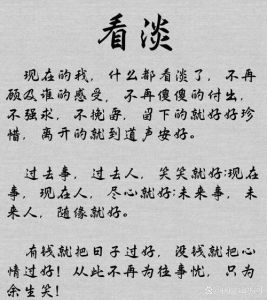 看淡
现在的我，什么都看淡了，不再
顾及谁的感受，不再傻傻的付出，
不强求，不挽留，留下的就好好珍
惜，离开的就到道声安好。
过去事，过去人，笑笑就好；现在
事，现在人，尽心就好；未来事，未
来人，随缘就好。
有钱就把日子过好，没钱就把心
情过好！从此不再为往事忧，只为
余生笑！